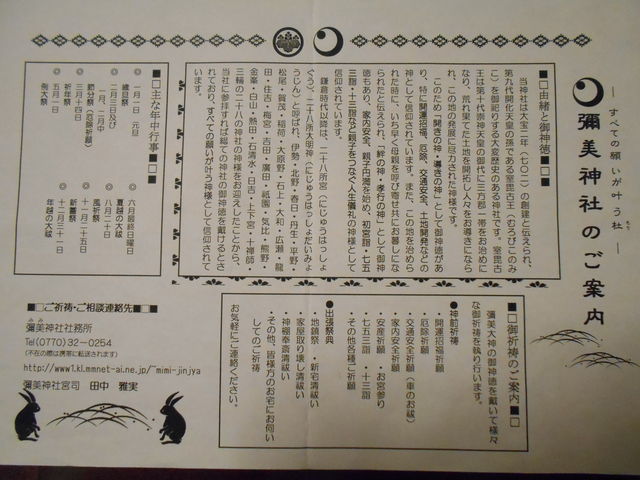 ― すべての願いが叶う社 ―
彌美神社のご案内
■□由緒と御神徳■□■
当神社は大宝二年（七〇二）の創建と伝えられ、
第九代開化天皇の孫である室毘古王（むろびこのみ
こ）を御祀りする大変歴史のある神社です。室毘古
王は第十代崇神天皇の御代に三方郡一帯をお治めに
なり、荒れ果てた土地を開拓し人々をお導きになら
れ、この地の発展に尽力された神様です。
このため「開きの神・導きの神」として御神徳があ
り、特に開運招福、厄除、交通安全、土地開発などの
神として信仰されています。また、この地を治めら
れた時に、いち早く母親を呼び寄せ共にお暮しにな
られたと伝えられ、「絆の神・孝行の神」として御神
徳もあり、家内安全、親子円満を始め、初宮詣・七五
三詣・十三詣など親子をつなぐ人生儀礼の神様として
信仰されています。
鎌倉時代以降は、二十八所宮（にじゅうはっしょ
ぐう）、二十八所大明神（にじゅうはっしょだいみょ
うじん）と呼ばれ、伊勢・北野・春日・丹生・平野・
松尾・賀茂・稲荷・大原野・石上・大和・広瀬・龍
田・住吉・梅宮・吉田・廣田・祇園・気比・熊野・
金峯・白山・熱田・石清水・日吉・上下宮・十禅師・
三輪の二十八カ所の神々の神様をお迎えしたことから、
当社に参拝すれば総ての神社の御神徳を戴けるとさ
れており、すべての願いが叶う神様として信仰されて
います。
■□主な年中行事■□■
◎一月一日 元旦
歳旦祭
◎二月三日及び
一月、二月中
節分祭（厄除祈願）
◎三月十四日
祈年祭
◎五月一日
例大祭
◎六月最終日曜日
夏越の大祓
◎八月二十日
風祈祭
◎十一月二十五日
新嘗祭
◎十二月三十一日
年越の大祓
■□御祈祷のご案内■□
彌美大神の御神徳を戴いて様々
な御祈祷を執り行います。
●神前祈祷
・開運招福祈願
・厄除祈願
・交通安全祈願（車のお祓）
・家内安全祈願
・安産祈願・お宮参り
・七五三詣・十三詣
・その他各種ご祈願
●出張祭典
・地鎮祭・新宅清祓い
・家屋取り壊し清祓い
・神棚奉斎清祓い
・その他、皆様方のお宅にお伺い
してのご祈祷
お気軽にご連絡ください。
■□ご祈祷・ご相談連絡先■□■
彌美神社社務所
Tel(0770)32-0254
(不在の際は携帯に転送されます)
http://www1.kl.mmnet-ai.ne.jp/~mimi-jinjya
彌美神社宮司 田中 雅実